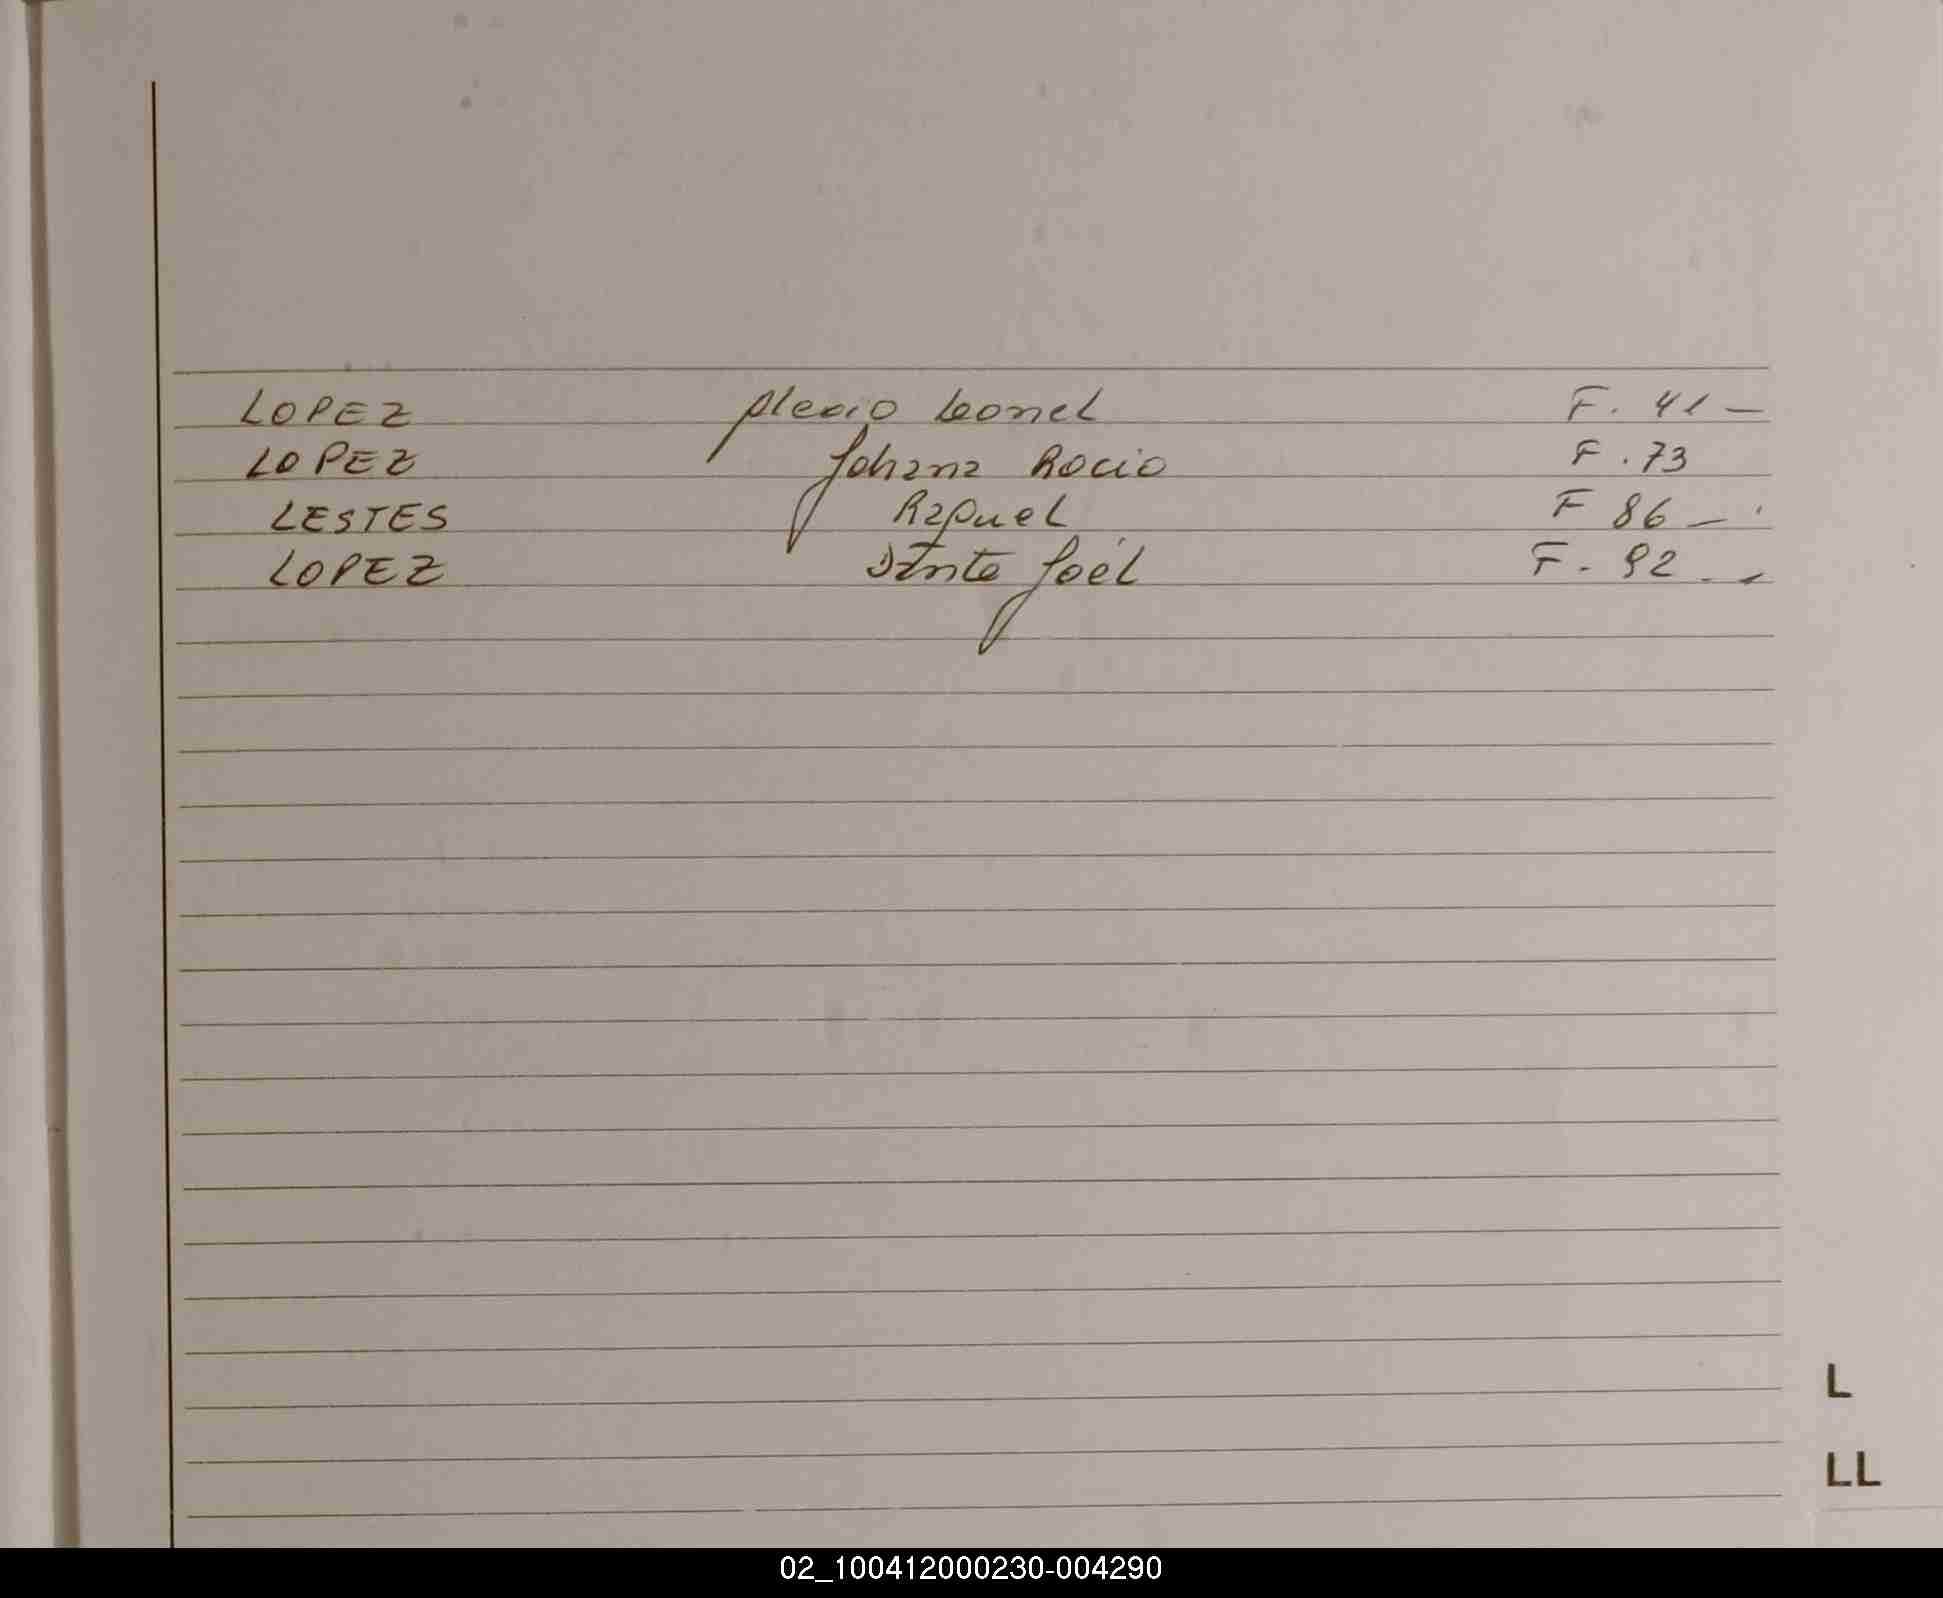 LOPEZ Alexio Leonel F. 41 —
LOPEZ Johana Rocio F. 73
LESTES Raquel F 86 —
LOPEZ Joél F. 92 . -
L
LL
02_100412000230-004290